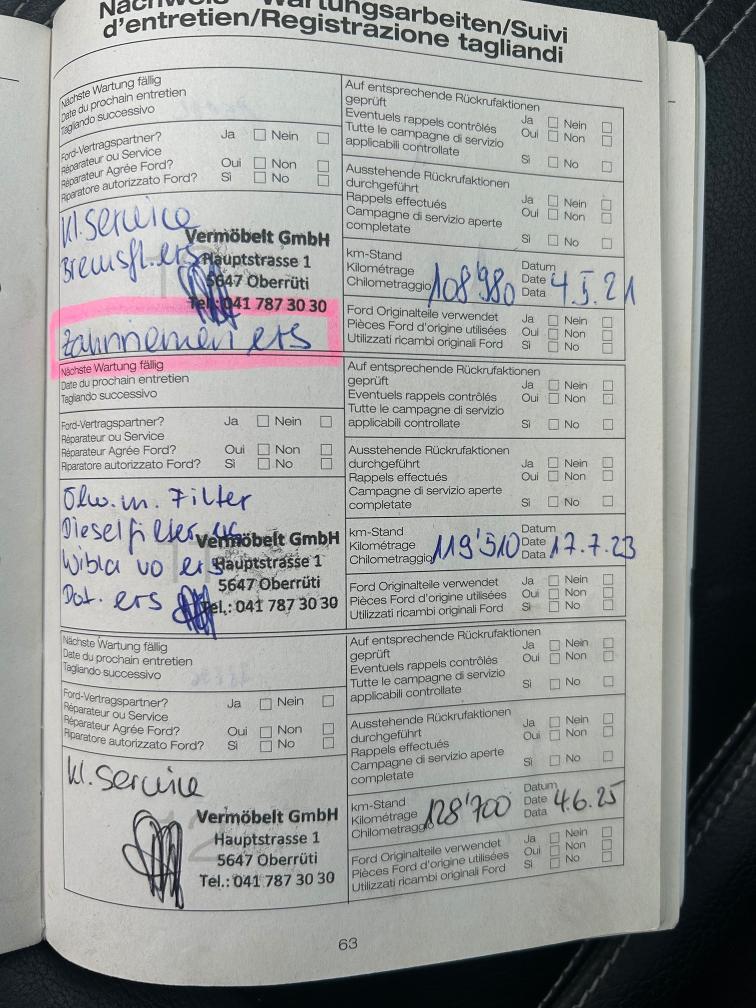 Nachweis Wartungsarbeiten/Suivi
d'entretien/Registrazione tagliandi
Nächste Wartung fällig
Date du prochain entretien
Tagliando successivo
Ford-Vertragspartner? Ja Nein
Réparateur ou Service
Réparateur Agrée Ford? Oui Non
Riparatore autorizzato Ford? Si No
Kl. Service
Bremsfl. ers
Vermöbelt GmbH
Hauptstrasse 1
5647 Oberrüti
Tel.: 041 787 30 30
Zahnriemen ers
Auf entsprechende Rückrufaktionen
geprüft Ja Nein
Eventuels rappels contrôlés Oui Non
Tutte le campagne di servizio
applicabili controllate Si No
Ausstehende Rückrufaktionen
durchgeführt Ja Nein
Rappels effectués Oui Non
Campagne di servizio aperte
completate Si No
km-Stand Datum
Kilométrage Date
Chilometraggio 108'980 Data 4.5.21
Ford Originalteile verwendet Ja Nein
Pièces Ford d'origine utilisées Oui Non
Utilizzati ricambi originali Ford Si No
Nächste Wartung fällig
Date du prochain entretien
Tagliando successivo
Ford-Vertragspartner? Ja Nein
Réparateur ou Service
Réparateur Agrée Ford? Oui Non
Riparatore autorizzato Ford? Si No
Ölw. m. Filter
Dieselfilter
Wibla vo ers
Bat. ers
Vermöbelt GmbH
Hauptstrasse 1
5647 Oberrüti
Tel.: 041 787 30 30
Auf entsprechende Rückrufaktionen
geprüft Ja Nein
Eventuels rappels contrôlés Oui Non
Tutte le campagne di servizio
applicabili controllate Si No
Ausstehende Rückrufaktionen
durchgeführt Ja Nein
Rappels effectués Oui Non
Campagne di servizio aperte
completate Si No
km-Stand Datum
Kilométrage Date
Chilometraggio 119'510 Data 17.7.23
Ford Originalteile verwendet Ja Nein
Pièces Ford d'origine utilisées Oui Non
Utilizzati ricambi originali Ford Si No
Nächste Wartung fällig
Date du prochain entretien
Tagliando successivo
Ford-Vertragspartner? Ja Nein
Réparateur ou Service
Réparateur Agrée Ford? Oui Non
Riparatore autorizzato Ford? Si No
Kl. Service
Vermöbelt GmbH
Hauptstrasse 1
5647 Oberrüti
Tel.: 041 787 30 30
Auf entsprechende Rückrufaktionen
geprüft Ja Nein
Eventuels rappels contrôlés Oui Non
Tutte le campagne di servizio
applicabili controllate Si No
Ausstehende Rückrufaktionen
durchgeführt Ja Nein
Rappels effectués Oui Non
Campagne di servizio aperte
completate Si No
km-Stand Datum
Kilométrage Date
Chilometraggio 128'700 Data 4.6.25
Ford Originalteile verwendet Ja Nein
Pièces Ford d'origine utilisées Oui Non
Utilizzati ricambi originali Ford Si No
63